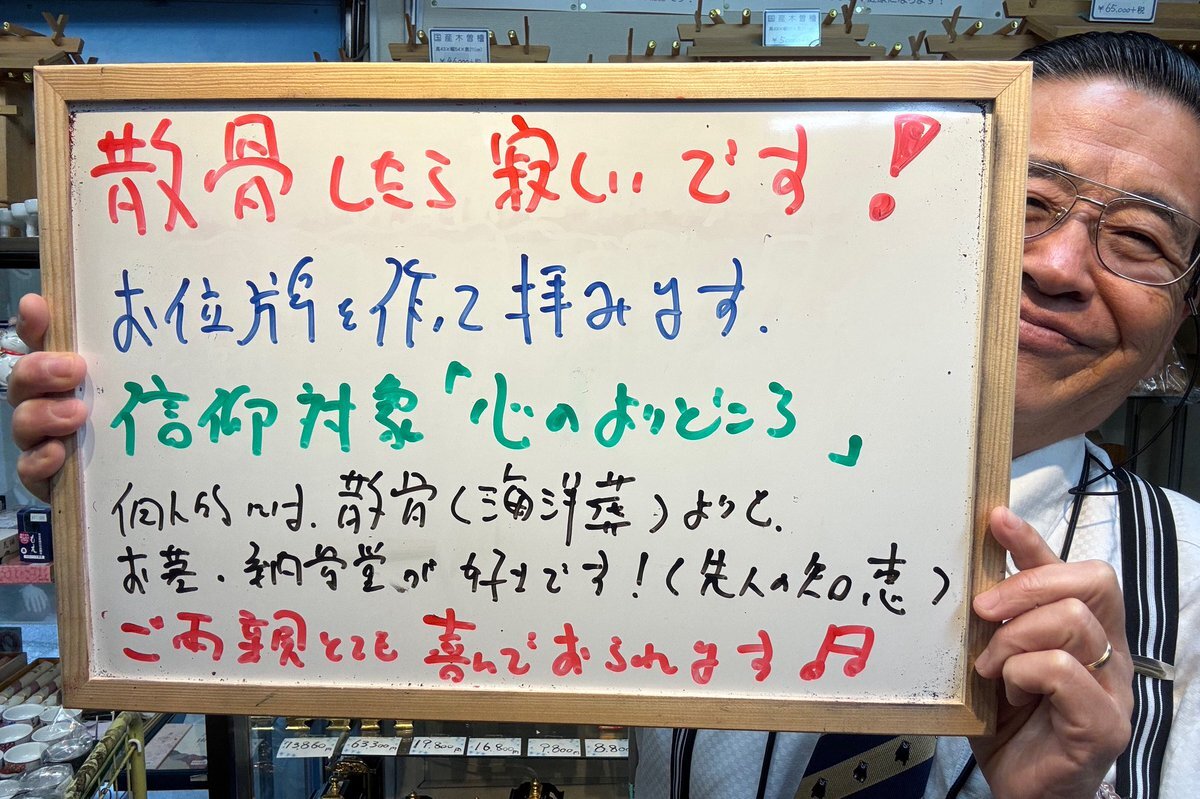 国産木曽檜
¥65,000+税
散骨したら寂しいです!
お位牌を作って拝みます.
信仰対象「心のよりどころ」
個人的には、散骨(海洋葬)よりも、
お墓・納骨堂が好きです!(先人の知恵)
ご両親とても喜んでおられます♬
63,300円 19,800円 16,800円 9,800円 8,800